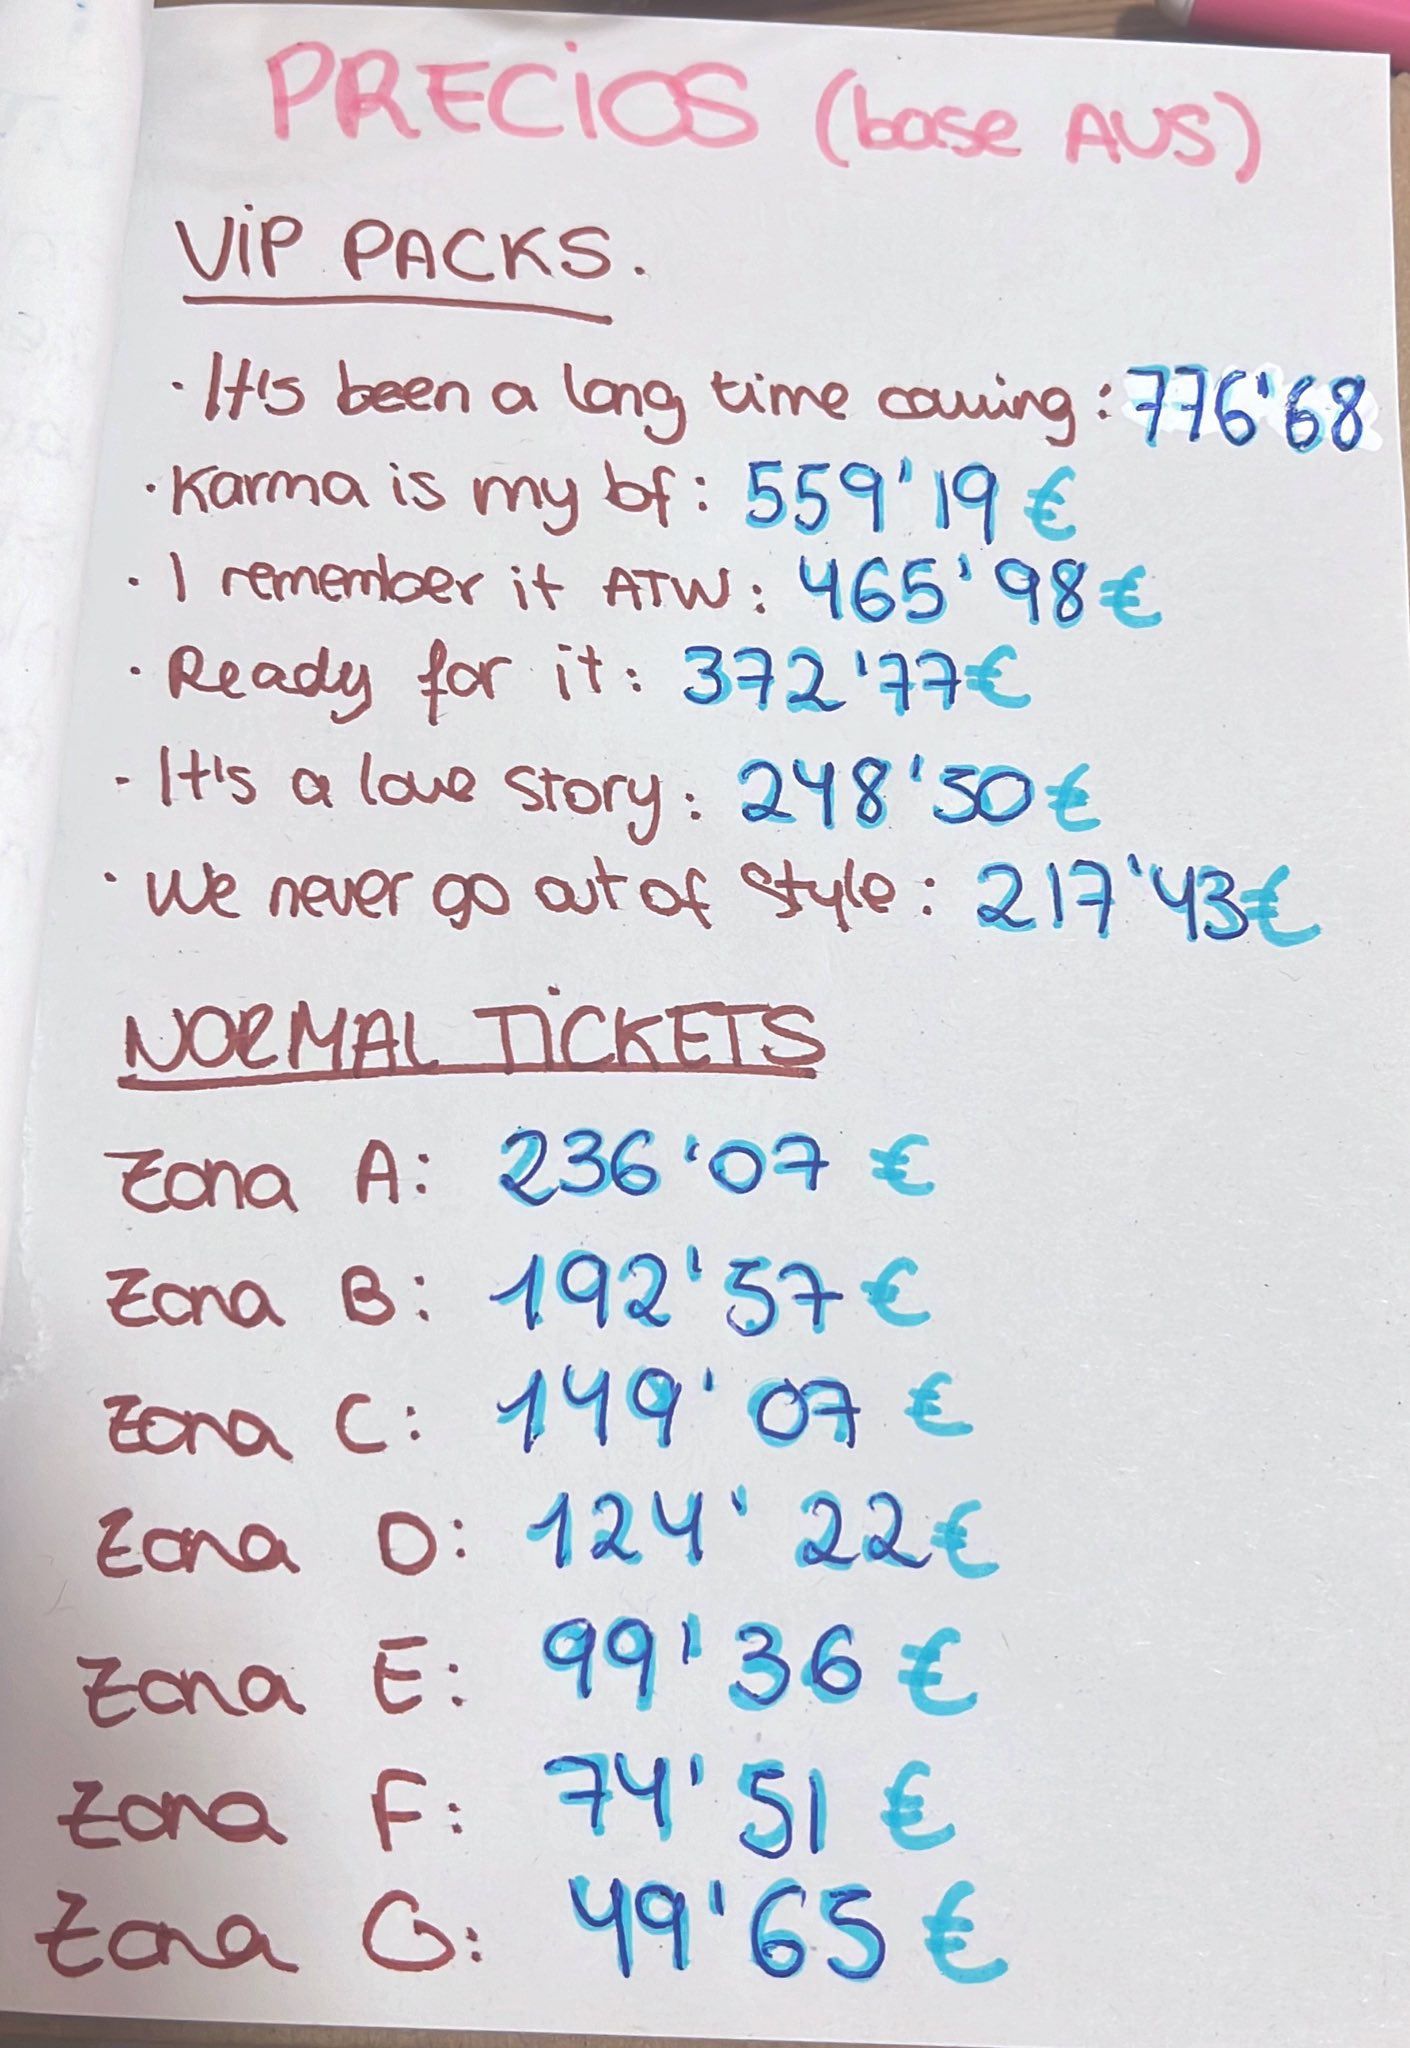 PRECIOS (base AUS)
VIP PACKS.
· It's been a long time coming: 776'68
· Karma is my bf: 559'19 €
· I remember it ATW: 465'98€
· Ready for it: 372'77€
- It's a love story: 248'50€
· We never go out of style: 217'43€
NORMAL TICKETS
Zona A: 236'07 €
Zona B: 192'57 €
Zona C: 149'07 €
Zona D: 124'22€
Zona E: 99'36 €
Zona F: 74'51 €
Zona G: 49'65 €